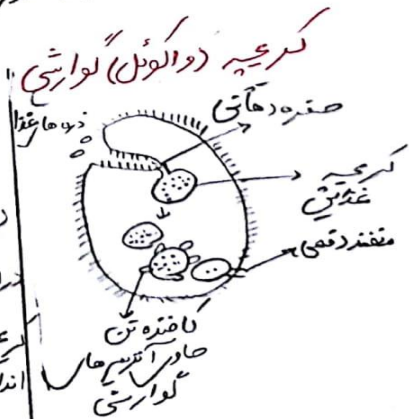 کریچه (واکوئل) گوارشی
ذره های غذا
حفره دهانی
کریچه
غذایی
منفذ دفعی
کافنده تن
حاوی آنزیم های
گوارشی